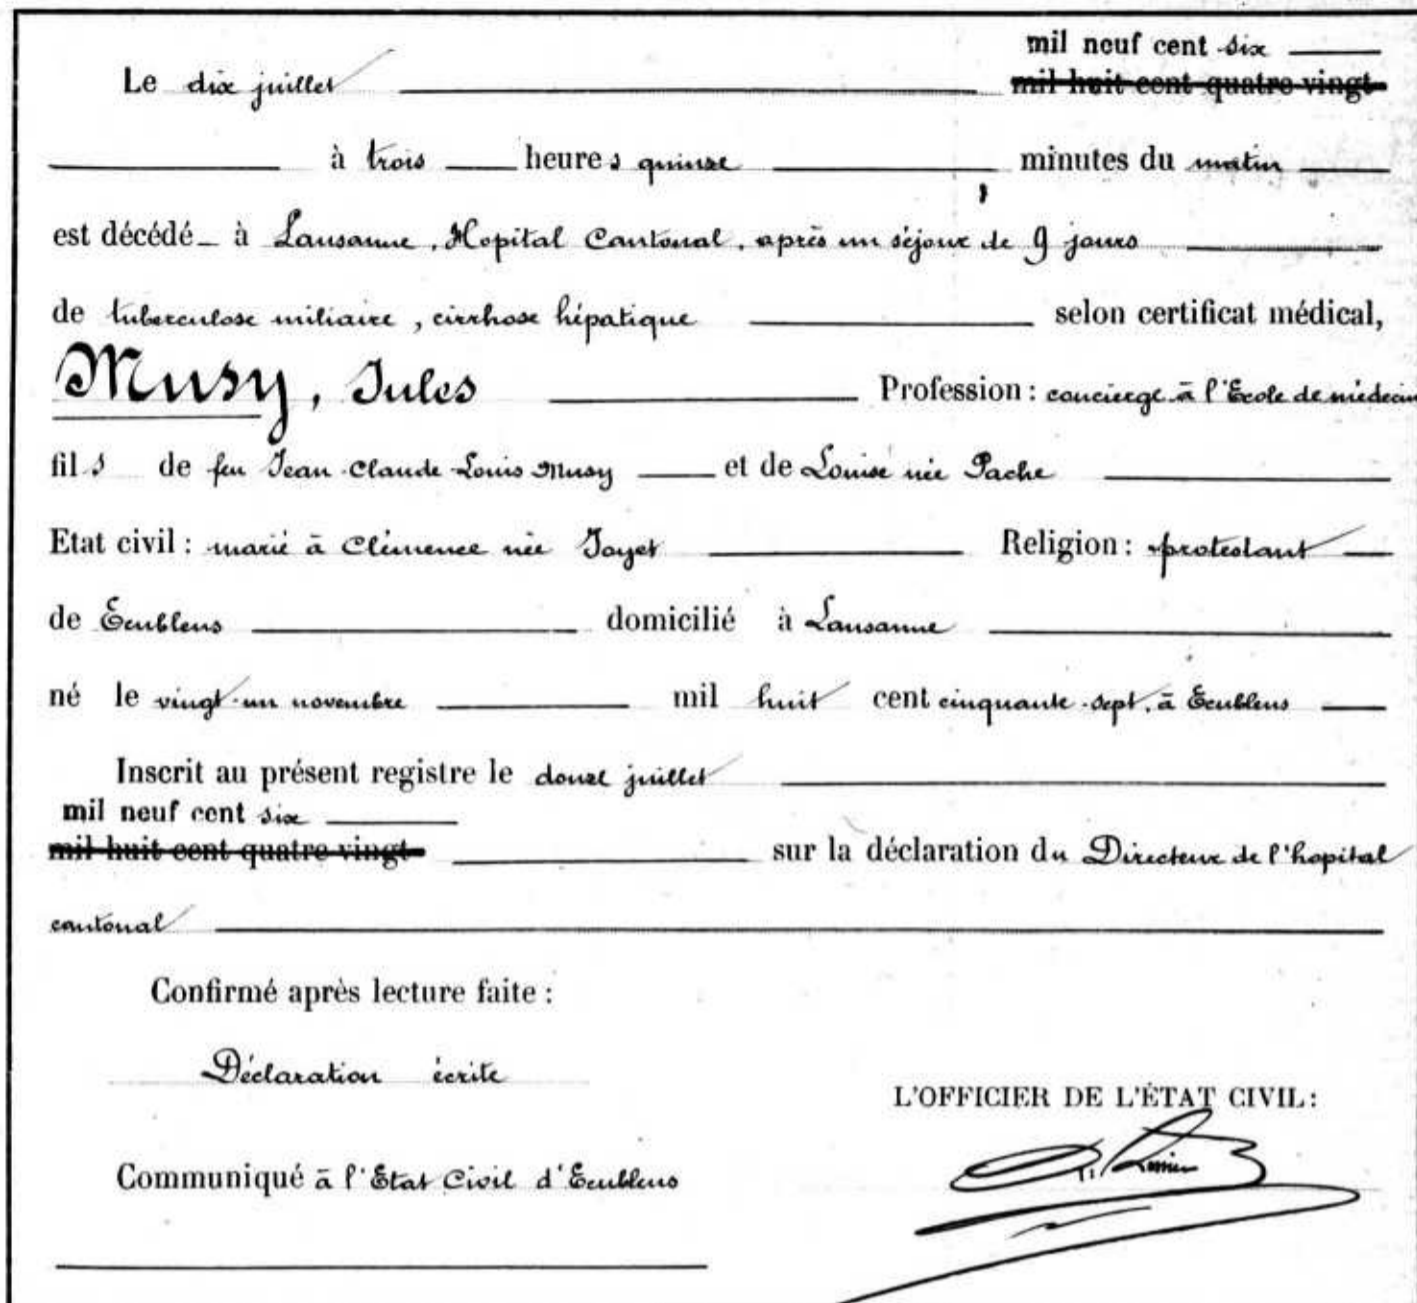 mil neuf cent six
Le dix juillet mil huit cent quatre-vingt-
à trois heures quinze minutes du matin
est décédé à Lausanne, Hopital Cantonal, après un séjour de 9 jours
de tuberculose miliaire, cirrhose hépatique selon certificat médical,
Musy, Jules Profession : concierge à l'Ecole de médecin
fils de feu Jean-Claude-Louis Musy et de Louise née Pache
Etat civil : marié à Clémence née Jayet Religion : protestant
de Ecublens domicilié à Lausanne
né le vingt-un novembre mil huit cent cinquante-sept, à Ecublens
Inscrit au présent registre le douze juillet
mil neuf cent six
mil huit cent quatre-vingt- sur la déclaration du Directeur de l'hopital
cantonal
Confirmé après lecture faite :
Déclaration écrite
L'OFFICIER DE L'ÉTAT CIVIL :
Communiqué à l'Etat Civil d'Ecublens